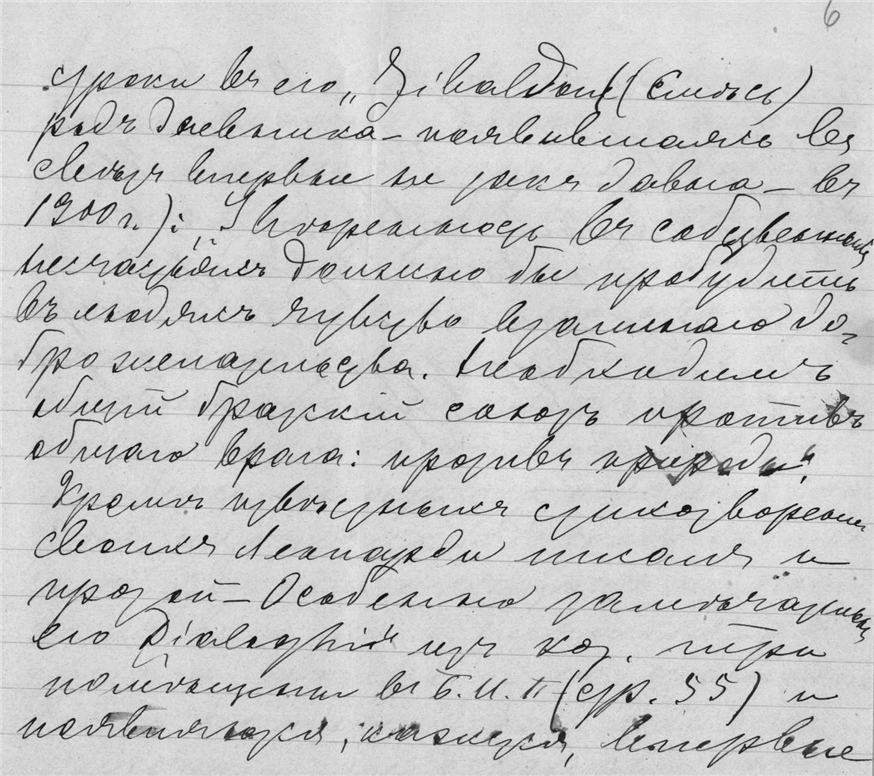 6
строки въ его „Zibaldone“ (Смѣсь)
родъ дневника – появившаяся въ
свѣтъ впервые не такъ давно – въ
1900 г.): „ въ собственныхъ
несчастьяхъ должно бы пробудить
въ людяхъ чувство взаимнаго до-
брожелательства. Необходимъ
общій братскій союзъ противъ
общаго врага: противъ природы“.
Кромѣ извѣстныхъ стихотвореній
своихъ Леопарди писалъ и
прозой – Особенно замѣчательны
его „Dialoghi“ изъ коз. три
помѣщены въ Б. И. П (стр. 55) и
появляются, кажется, впервые